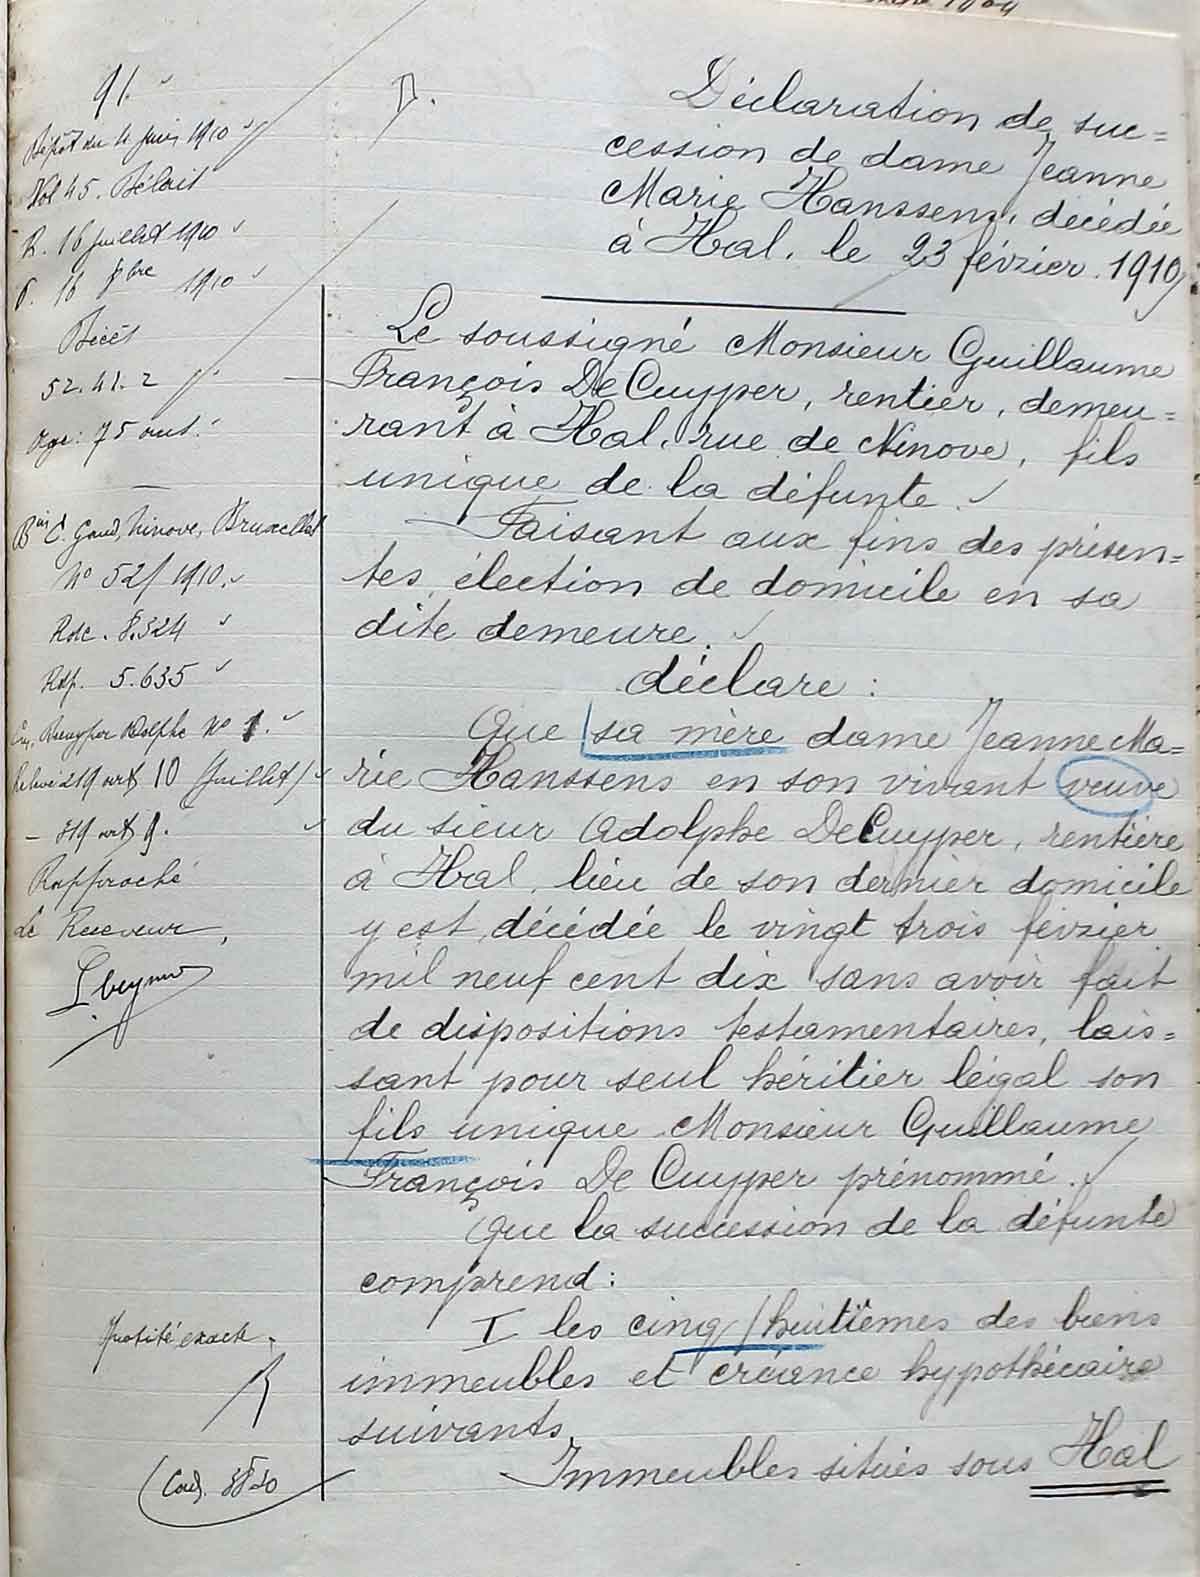 91.
Dépôt du 4 juin 1910
Vol 45.
R. 16 juillet 1910
16 8bre 1910
Décès
52.41.2
Age: 75 ans.
Gand, Ninove, Bruxelles
No 52/1910.
Rdc. 8.324
Rdp. 5.635
Decuyper Adolphe No 1.
219 art 10 (juillet)
- 319 art 9.
Rapproché
Le Receveur,
Quotité exacte.
(Cad.
D.
Déclaration de suc=
cession de dame Jeanne
Marie Hanssens, décédée
à Hal, le 23 février 1910
Le soussigné Monsieur Guillaume
François De Cuyper, rentier, demeu=
rant à Hal, rue de Ninove, fils
unique de la défunte.
Faisant aux fins des présen=
tes, élection de domicile en sa
dite demeure.
déclare :
Que sa mère dame Jeanne Ma=
rie Hanssens en son vivant veuve
du sieur Adolphe De Cuyper, rentière
à Hal, lieu de son dernier domicile
y est décédée le vingt trois février
mil neuf cent dix sans avoir fait
de dispositions testamentaires, lais=
sant pour seul héritier légal son
fils unique Monsieur Guillaume
François De Cuyper prénommé.
Que la succession de la défunte
comprend :
I les cinq/huitièmes des biens
immeubles et créance hypothécaire
suivants
Immeubles situés sous Hal